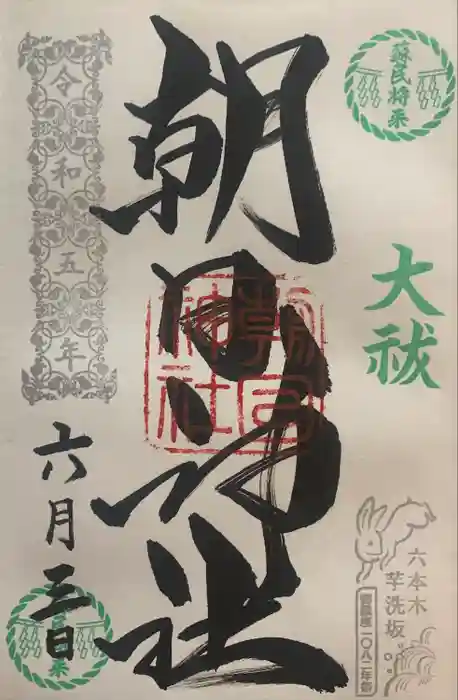 蘇民将来
大祓
六本木
芋洗坂
一〇八二年
朝日神社
朝日
神社
令和五年
六月三日